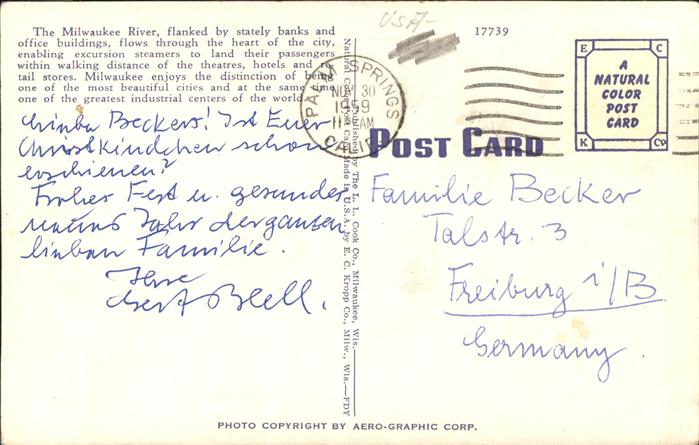 The Milwaukee River, flanked by stately banks and
office buildings, flows through the heart of the city,
enabling excursion steamers to land their passengers
within walking distance of the theatres, hotels and re-
tail stores. Milwaukee enjoys the distinction of being
one of the most beautiful cities and at the same time
one of the greatest industrial centers of the world.
USA
17739
PALM SPRINGS
NOV 30
1959
11 AM
CALIF
A
NATURAL
COLOR
POST
CARD
E C
K Co
POST CARD
Natural Color Post Card Published by The L. L. Cook Co., Milwaukee, Wis.
Made in U.S.A. by E. C. Kropp Co., Milw., Wis.—FDY
Beckers! Ist Euer
Christkindchen schon
erschienen?
Froher Fest u. gesundes
neues Jahr der ganzen
lieben Familie.
Ihre
Familie Becker
Talstr. 3
Freiburg i/B
Germany.
PHOTO COPYRIGHT BY AERO-GRAPHIC CORP.